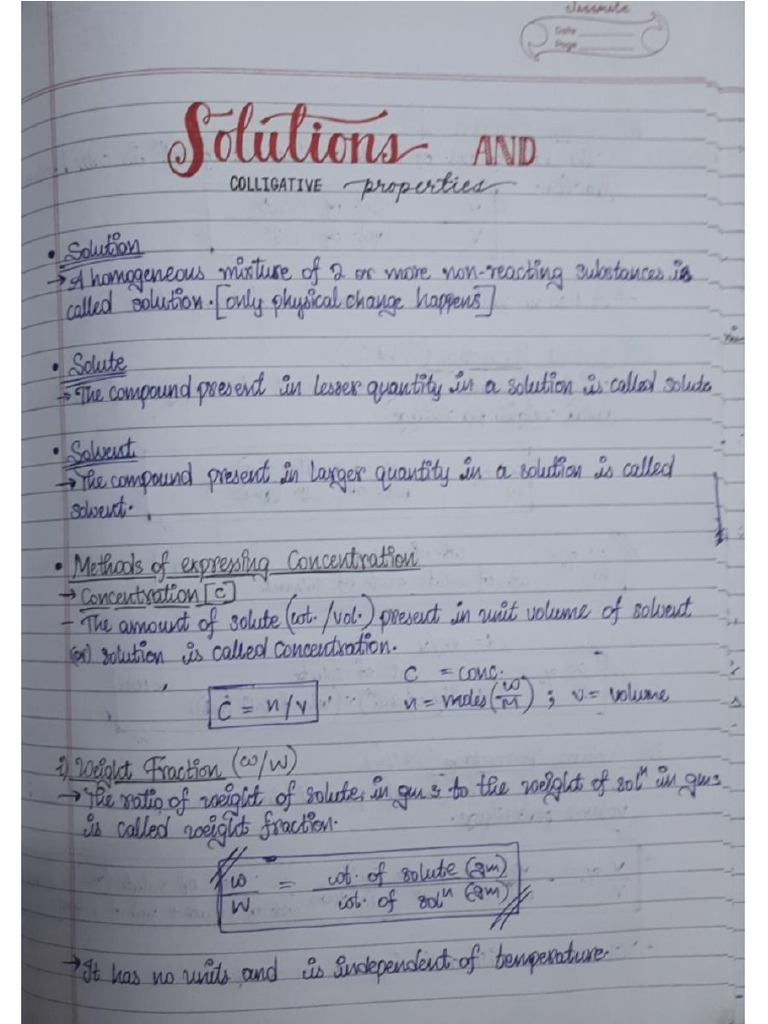 classmate
Date
Page
Solutions AND
COLLIGATIVE properties
• Solution
→ A homogeneous mixture of 2 or more non-reacting substances is
called solution. [only physical change happens]
• Solute
→ The compound present in lesser quantity in a solution is called solute
• Solvent
→ The compound present in larger quantity in a solution is called
solvent.
• Methods of expressing Concentration
→ Concentration [C]
- The amount of solute (wt./vol.) present in unit volume of solvent
(or) solution is called concentration.
C = conc.
C = n/v n = moles (w/M) ; v = volume
i) Weight Fraction (w/W)
→ The ratio of weight of solute in gms to the weight of solⁿ in gms
is called weight fraction.
w/W = wt. of solute (gm) / wt. of solⁿ (gm)
→ It has no units and is independent of temperature.